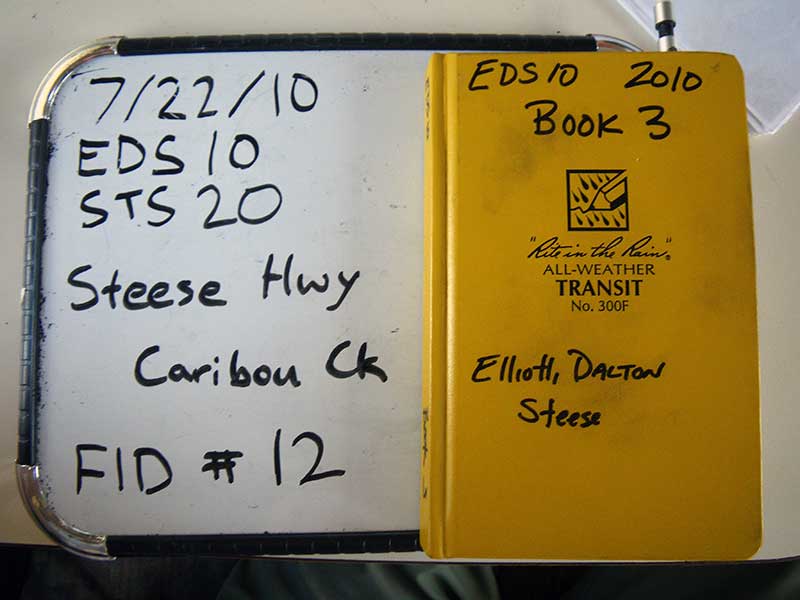 7/22/10
EDS10
STS20
Steese Hwy
Caribou Ck
FID # 12
EDS10 2010
BOOK 3
"Rite in the Rain"®
ALL-WEATHER
TRANSIT
No. 300F
Elliott, DALTON
Steese